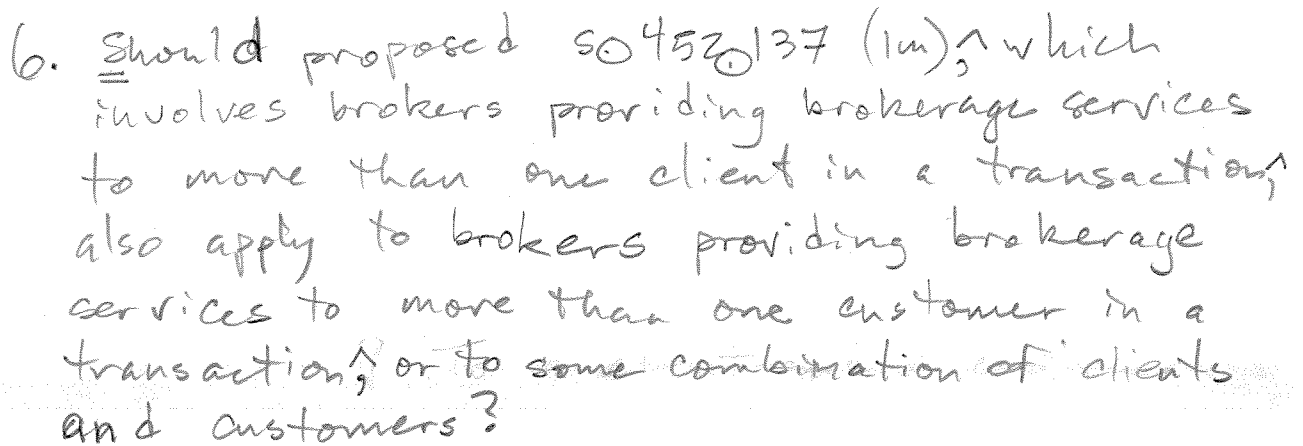 6. Should proposed s. 452.137 (1m), which
involves brokers providing brokerage services
to more than one client in a transaction,
also apply to brokers providing brokerage
services to more than one customer in a
transaction, or to some combination of clients
and customers?